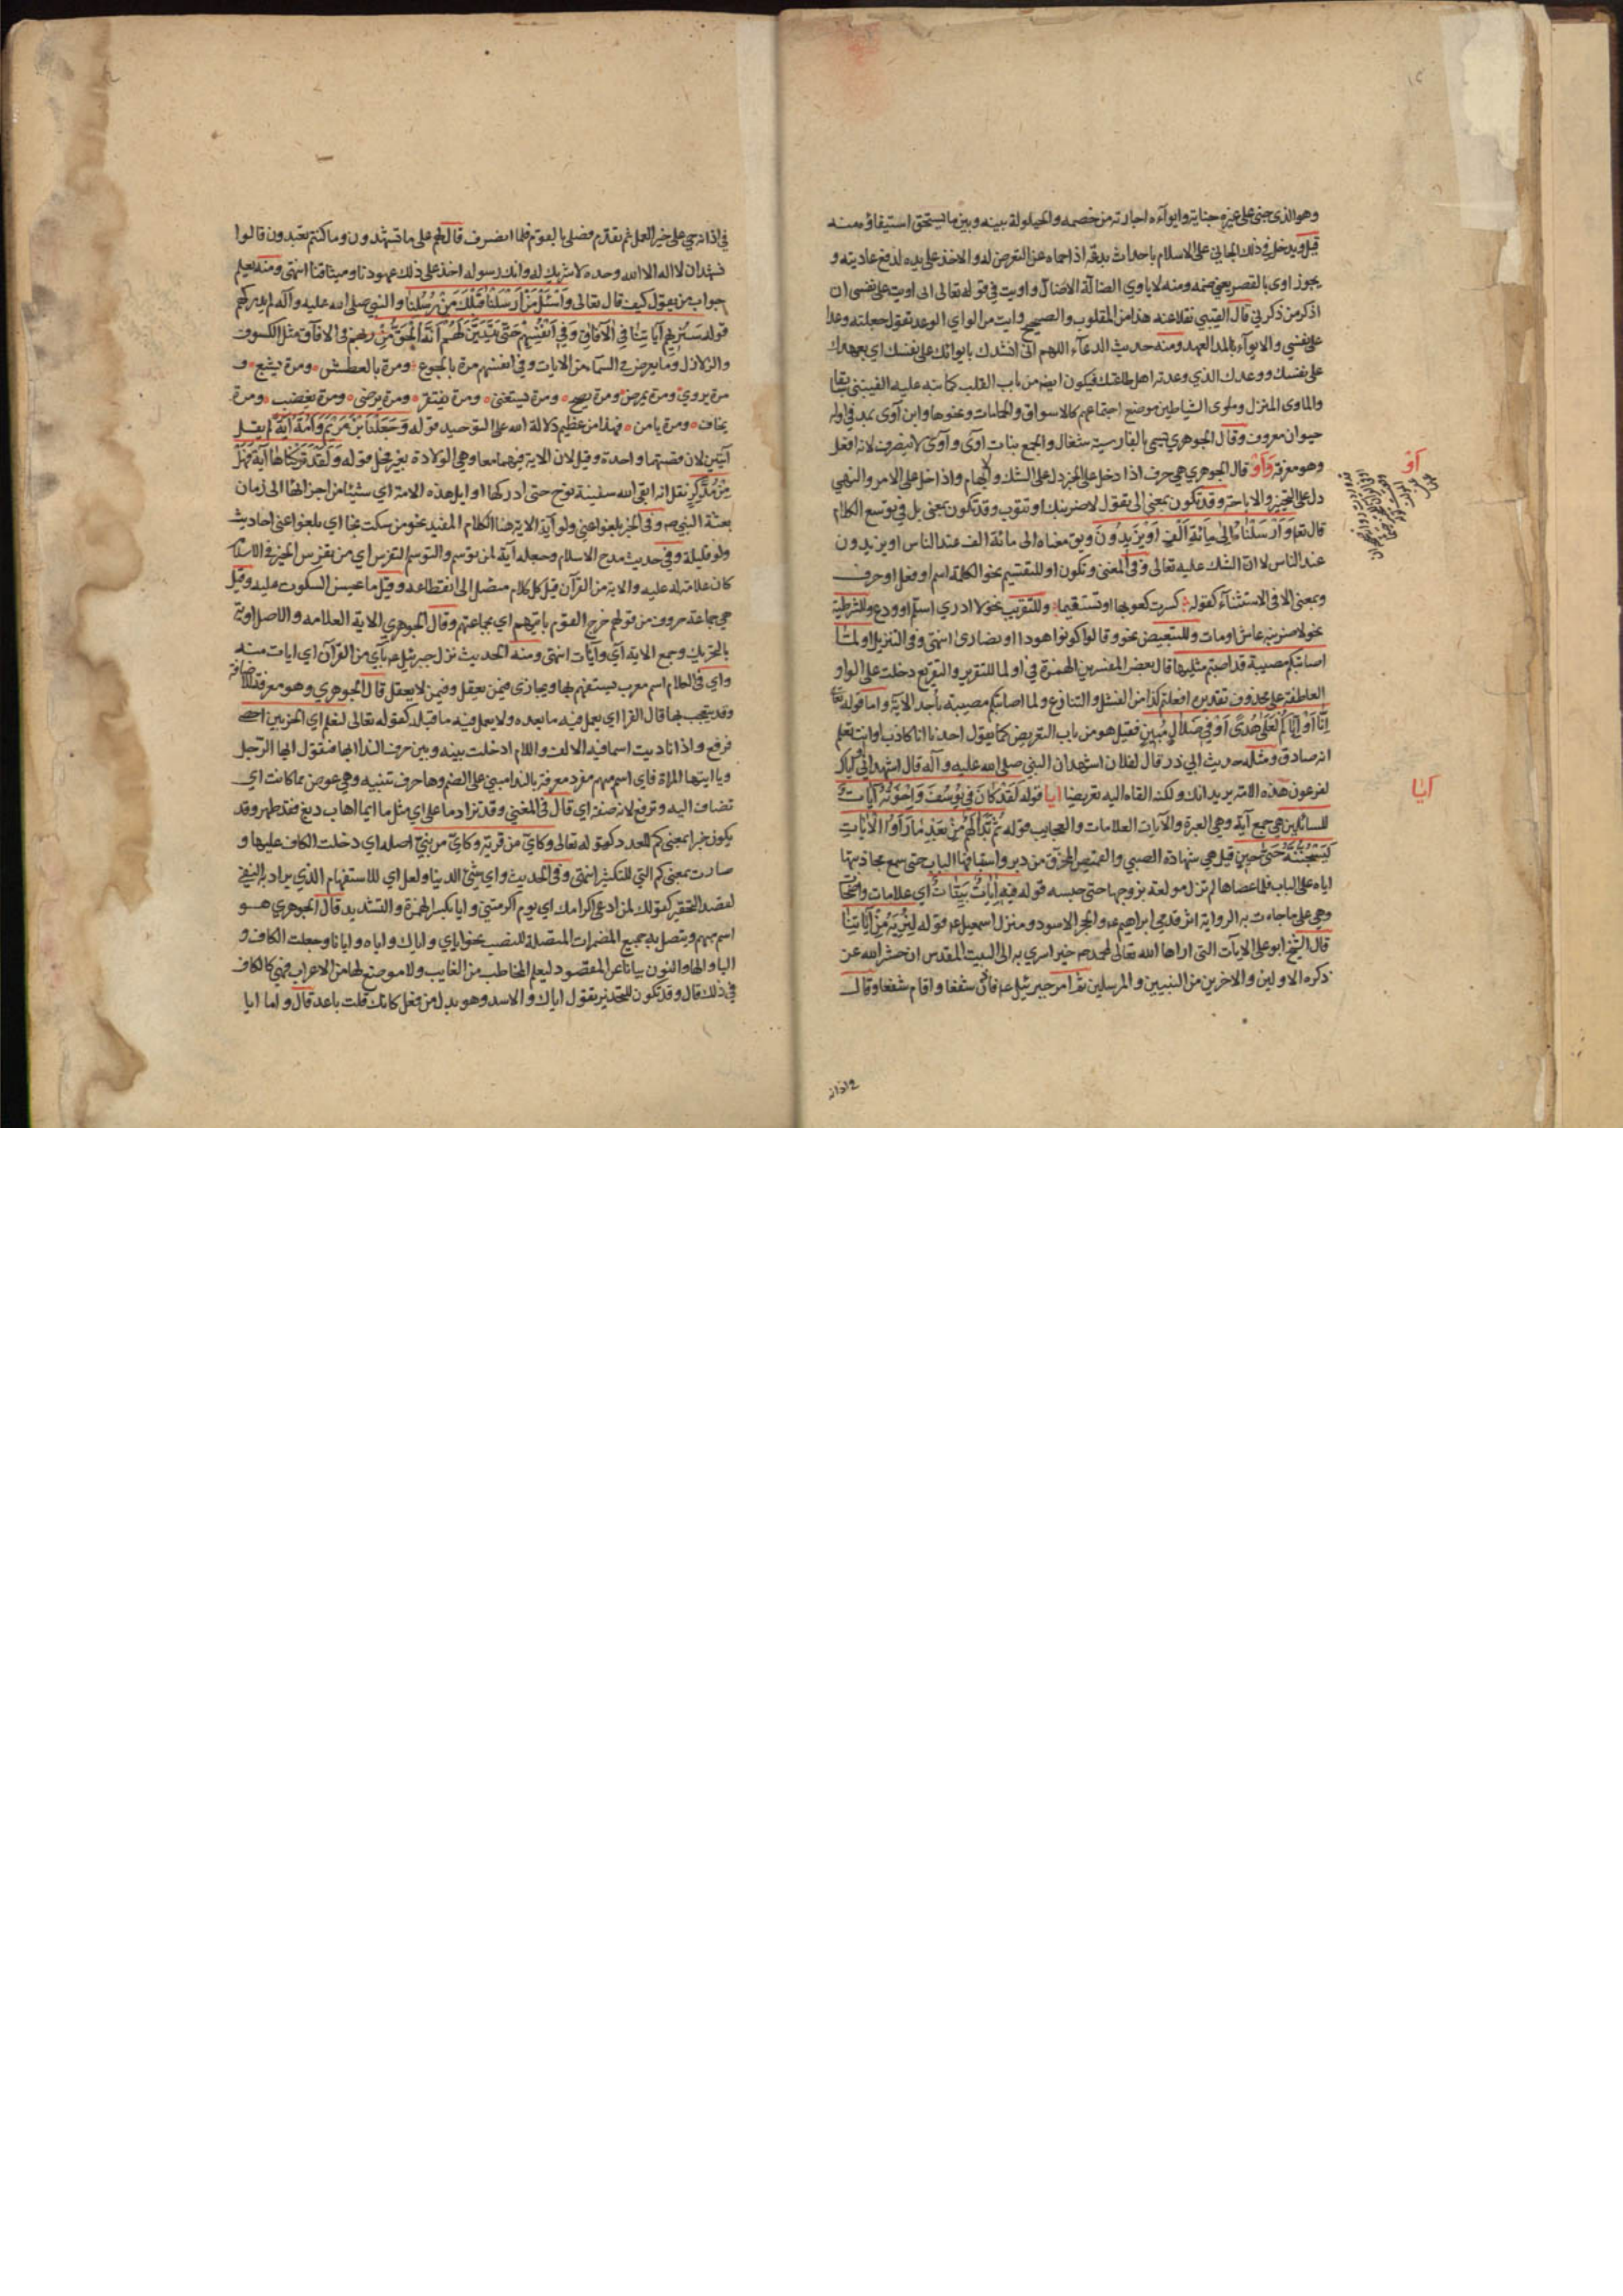 وهو الذي جنى على غيره جناية وايواءه اجارته من خصمه والحيلولة بينه وبين ما يستحق استيفاؤه منه
قيل ويدخل في ذلك الجاني على الاسلام باحداث بدعة اذا حماه عن التعرض له والاخذ على يده لدفع عاديته و
يجوز اوى بالقصر يعني ضمه ومنه لا ياوي الضالة الا ضال واويت في قوله تعالى اني اويت على نفسي ان
اذكر من ذكرني قال القتيبي نقلا عنه هذا من المقلوب والصحيح وايت من الواي الوعد تقول جعلته وعدا
على نفسي والايواء بالمد العهد ومنه حديث الدعاء اللهم اني انشدك بايوائك على نفسك اي بعهدك
على نفسك ووعدك الذي وعدته اهل طاعتك فيكون ايضا من باب القلب كما نبه عليه القتيبي سابقا
والماوى المنزل وماوى الشياطين موضع اجتماعهم كالاسواق والحمامات ونحوها وابن آوى بمد في اوله
حيوان معروف وقال الجوهري يسمى بالفارسية شغال والجمع بنات آوى وآوى لا ينصرف لانه افعل
وهو معرفة وَاَوْ قال الجوهري هي حرف اذا دخل على الخبر دل على الشك والابهام واذا دخل على الامر والنهي
دل على التخيير والاباحة وقد تكون بمعنى الى يقول لاضربنك او تتوب وقد تكون بمعنى بل في توسع الكلام
قال تعا وَاَرْسَلْنَاهُ اِلَى مِائَةِ اَلْفٍ اَوْ يَزِيدُونَ ويق معناه الى مائة الف عند الناس او يزيدون
عند الناس لان الشك عليه تعالى وفي المغني وتكون او للتقسيم نحو الكلمة اسم او فعل او حرف
وبمعنى الا في الاستثناء كقوله كسرت كعوبها او تستقيما وللتقريب نحو لا ادري اسلم او ودع وللشرطية
نحو لاضربنه عاش او مات وللتبعيض نحو وقالوا كونوا هودا او نصارى انتهى وفي التنزيل اولما
اصابتكم مصيبة قد اصبتم مثليها قال بعض المفسرين الهمزة في اولما للتقرير والتقريع دخلت على الواو
العاطفة على محذوف تقديره افعلتم كذا من الفشل والتنازع ولما اصابتكم مصيبة باحد الاية واما قوله تعا
اِنَّا اَوْ اِيَّاكُمْ لَعَلَى هُدًى اَوْ فِي ضَلَالٍ مُبِينٍ فقيل هو من باب التعريض كما يقول احدنا انا كاذب وانت تعلم
انه صادق ومثله حديث ابي ذر قال لفلان اشهد ان النبي صلى الله عليه وآله قال اشهد اني او اياك
لفرعون هذه الامة يريد انك ولكنه القاه اليه تعريضا ايا قوله لَقَدْ كَانَ فِي يُوسُفَ وَاِخْوَتِهِ آيَاتٌ
للسائلين هي جمع آية وهي العبرة والآيات العلامات والعجايب قوله ثُمَّ بَدَا لَهُمْ مِنْ بَعْدِ مَا رَاَوُا الْآيَاتِ
لَيَسْجُنُنَّهُ حَتَّى حِينٍ قيل هي شهادة الصبي والقميص المخرق من دبر واستباقهما الباب حتى سمع مجاذبتها
اياه على الباب فلما عصاها لم تزل مولعة بزوجها حتى حبسه قوله فِيهِ آيَاتٌ بَيِّنَاتٌ اي علامات واضحات
وهي على ما جاءت به الرواية اثر قدمي ابراهيم ع والحجر الاسود ومنزل اسمعيل ع قوله لِنُرِيَهُ مِنْ آيَاتِنَا
قال الشيخ ابو علي الايات التي اراها الله تعالى لمحمد ص حين اسري به الى البيت المقدس ان حشر الله عز
ذكره الاولين والاخرين من النبيين والمرسلين ثم امر جبرئيل ع فاذن شفعا واقام شفعا وقال
في اذانه
اَوْ
آيَا
في اذانه حي على خير العمل ثم تقدم فصلى بالقوم فلما انصرف قال لهم على ما تشهدون وما كنتم تعبدون قالوا
نشهد ان لا اله الا الله وحده لا شريك له وانك رسوله اخذ على ذلك عهودنا وميثاقنا انتهى ومنه يعلم
جواب من يقول كيف قال تعالى وَاسْئَلْ مَنْ اَرْسَلْنَا قَبْلَكَ مِنْ رُسُلِنَا والنبي صلى الله عليه وآله لم يدركهم
قوله سَنُرِيهِمْ آيَاتِنَا فِي الْآفَاقِ وَفِي اَنْفُسِهِمْ حَتَّى يَتَبَيَّنَ لَهُمْ اَنَّهُ الْحَقُّ مِنْ ربهم في الافاق مثل الكسوف
والزلازل وما يعرض في السماء من الايات وفي انفسهم مرة بالجوع ومرة بالعطش ومرة يشبع و
مرة يروى ومرة يمرض ومرة يصح ومرة يستغنى ومرة يفتقر ومرة يرضى ومرة يغضب ومرة
يخاف ومرة يامن فهذا من عظيم دلالة الله على التوحيد قوله وَجَعَلْنَا ابْنَ مَرْيَمَ وَاُمَّهُ آيَةً لم يقل
آيتين لان قصتهما واحدة وقيل لان الاية فيهما معا وهي الولادة بغير فحل قوله وَلَقَدْ تَرَكْنَاهَا آيَةً فَهَلْ
مِنْ مُدَّكِرٍ نقل انه ابقى الله سفينة نوح حتى ادركها اوايل هذه الامة اي شيئا من اجزائها الى زمان
بعثة النبي ص وفي الخبر بلغوا عني ولو آية الاية هنا الكلام المفيد نحو من سكت نجا اي بلغوا عني احاديث
ولو قليلة وفي حديث مدح الاسلام وجعله آية لمن توسم والتوسم التفرس اي من تفرس الخير في الاسلام
كان علامة له عليه والاية من القرآن قيل كل كلام متصل الى انقطاعه وقيل ما يحسن السكوت عليه وقيل
هي جماعة حروف من قولهم خرج القوم بايتهم اي بجماعتهم وقال الجوهري الاية العلامة والاصل اوية
بالتحريك وجمع الاية آي وآيات انتهى ومنه الحديث نزل جبرئيل ع بآي من القرآن اي ايات منه
واي في الكلام اسم معرب يستفهم بها ويجازى فيمن يعقل وفيمن لا يعقل قال الجوهري وهو معرفة للاضافة
وقد يتعجب بها قال الفرا اي يعمل فيه ما بعده ولا يعمل فيه ما قبله كقوله تعالى لنعلم اي الحزبين احصى
فرفع واذا ناديت اسما فيه الالف واللام ادخلت بينه وبين حرف الندا ايها فتقول ايها الرجل
ويا ايتها المراة فاي اسم مبهم مفرد معرفة بالندا مبني على الضم وها حرف تنبيه وهي عوض مما كانت اي
تضاف اليه وترفع لانه صفة اي قال في المغني وقد تزاد ما على اي مثل ما ايما اهاب دبغ فقد طهر وقد
يكون خبرا بمعنى كم للعدد كقوله تعالى وكاي من قرية وكاي من نبي اصله اي دخلت الكاف عليها و
صارت بمعنى كم التي للتكثير انتهى وفي الحديث واي شئ الدنيا ولعل اي للاستفهام الذي يراد به النفي
لقصد التحقير كقولك لمن ادعى اكرامك اي يوم اكرمتني وايا بكسر الهمزة والتشديد قال الجوهري هو
اسم مبهم ويتصل به جميع المضمرات المتصلة للنصب نحو اياي واياك واياه وايانا وجعلت الكاف و
اليا والها والنون بيانا عن المقصود ليعلم المخاطب من الغايب ولا موضع لها من الاعراب فهي كالكاف
في ذلك قال وقد تكون للتحذير يقول اياك والاسد وهو بدل من فعل كانك قلت باعد قال واما ايا